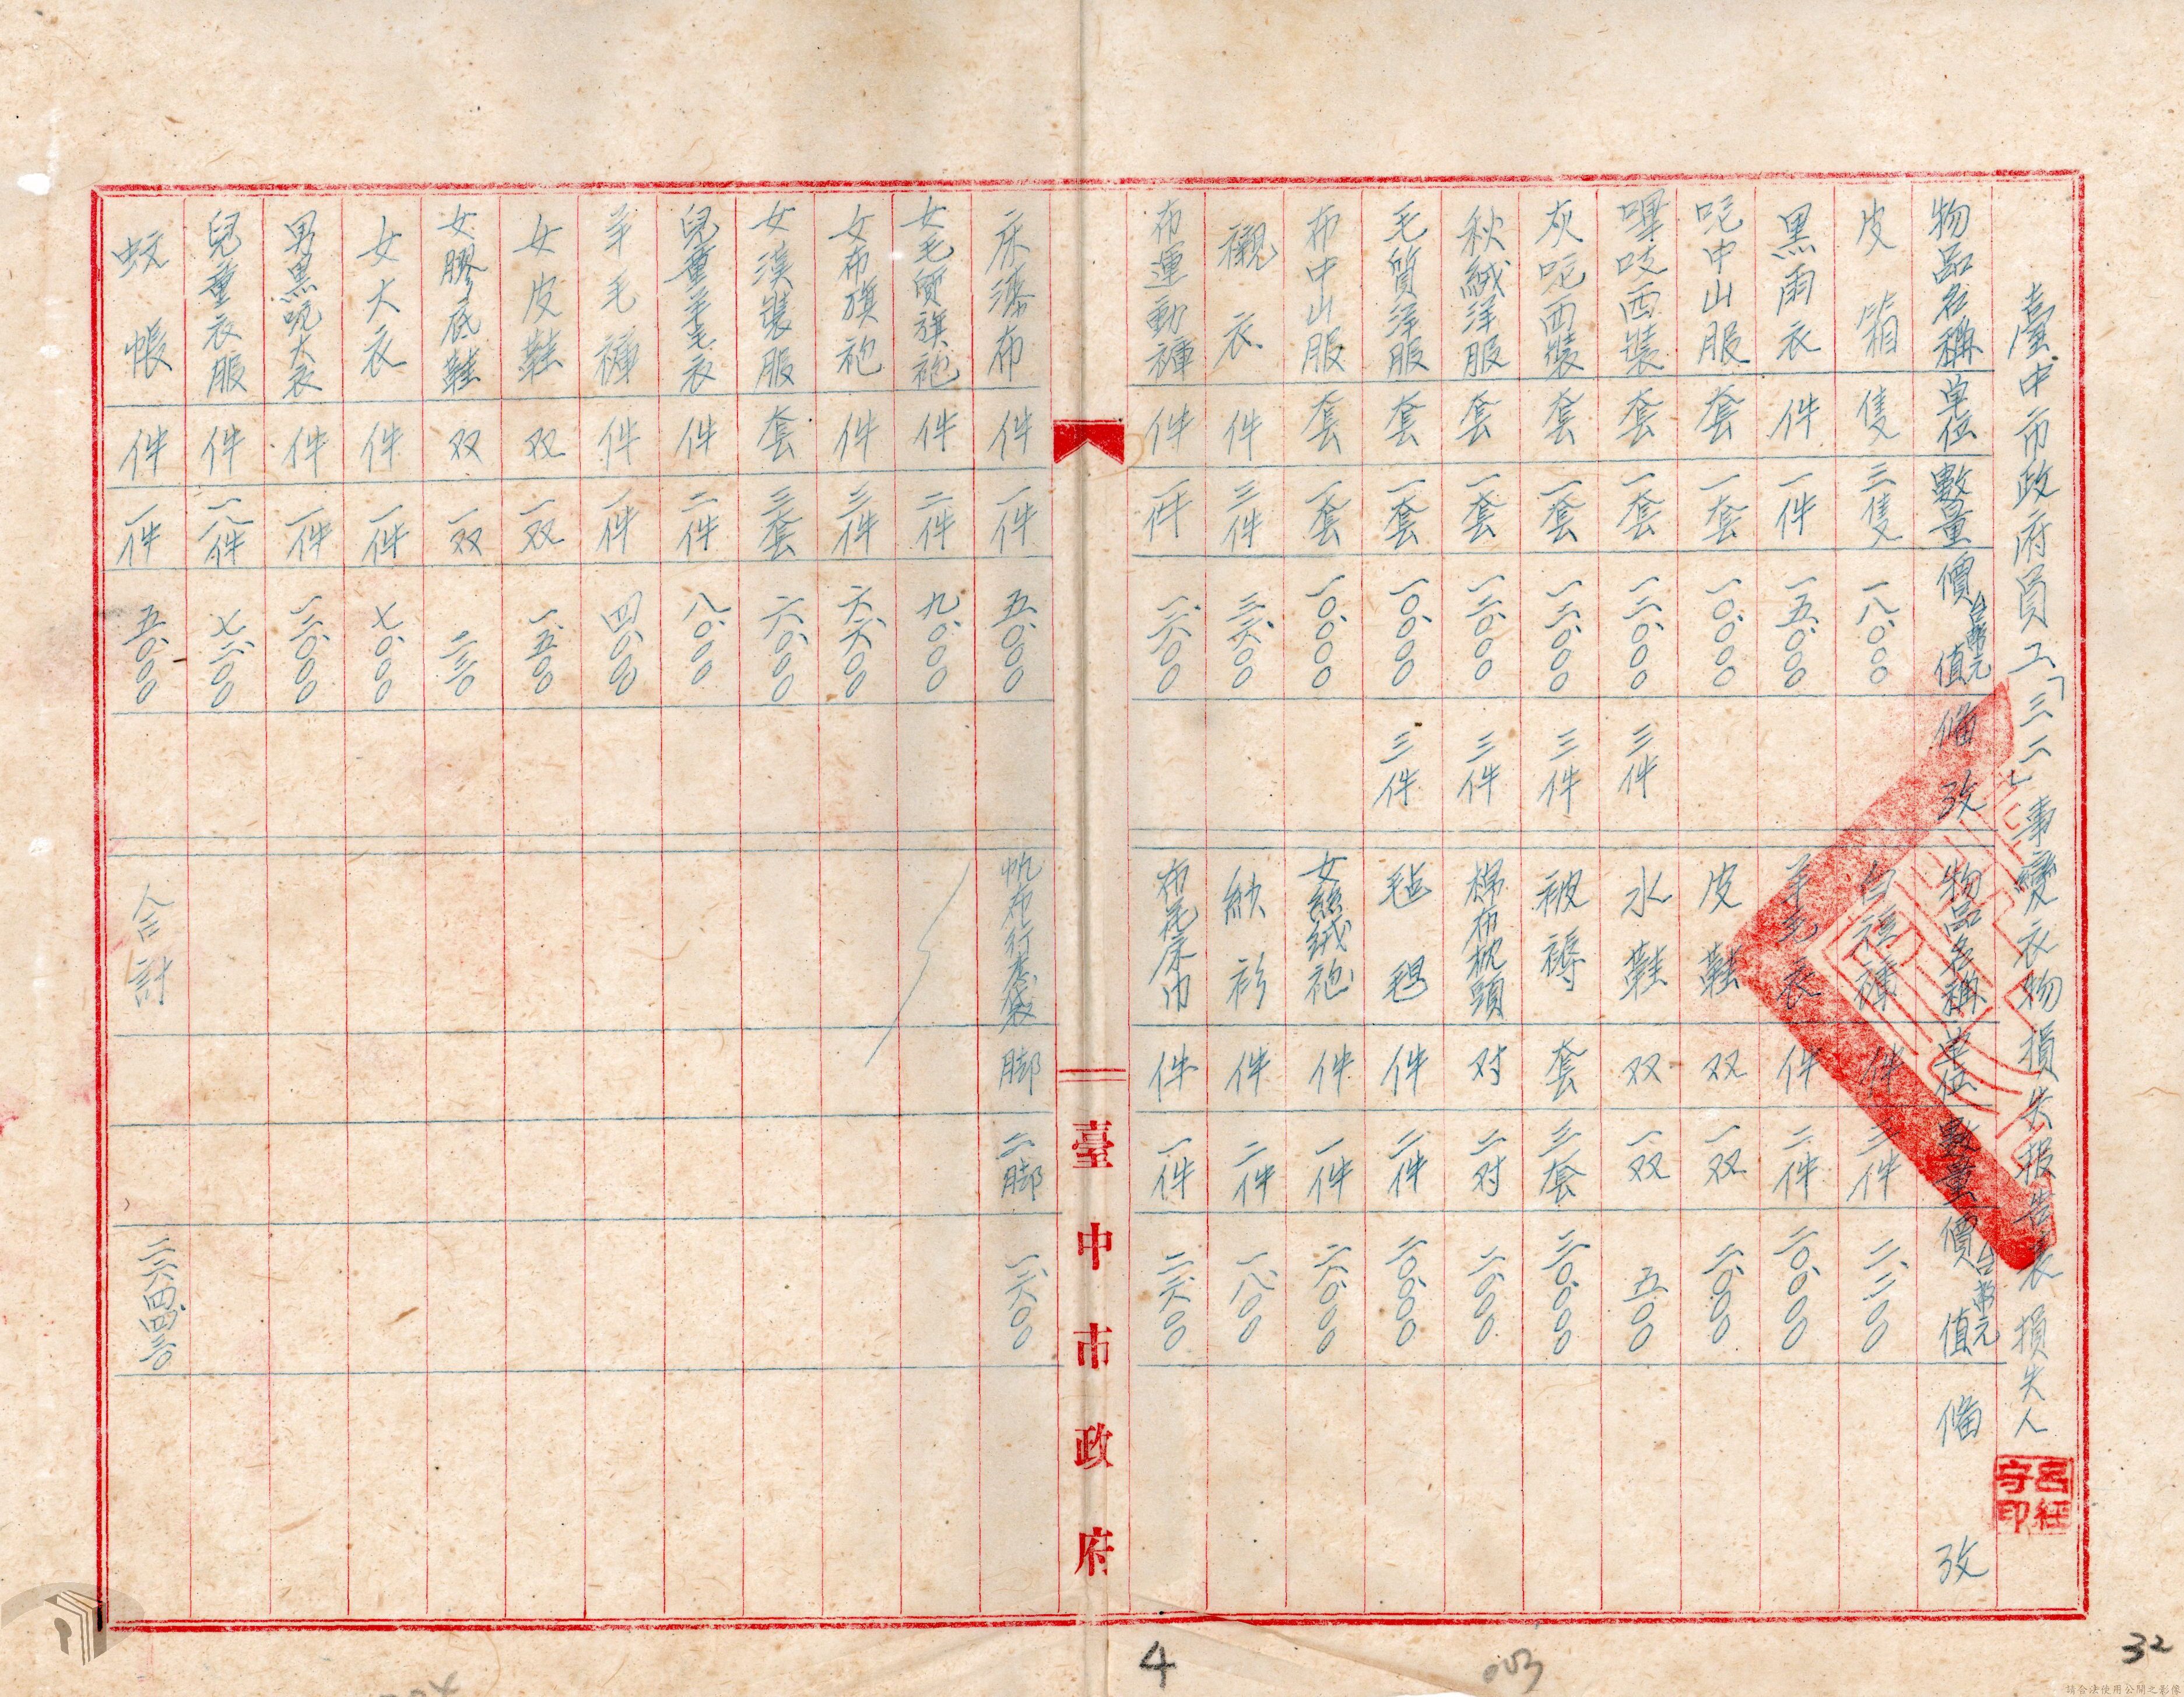 臺中市政府員工「三二」事變衣物損失報告表 損失人
呂經守印
物品名稱 單位 數量 價值 台幣元 備攷 物品名稱 單位 數量 價值 台幣元 備攷
皮箱 隻 三隻 一八.〇〇〇 白短褲 件 三件 二.二〇〇
黑雨衣 件 一件 一五.〇〇〇 羊毛衣 件 二件 二〇.〇〇〇
呢中山服 套 一套 一〇.〇〇〇 皮鞋 双 一双 二.〇〇〇
嗶吱西裝 套 一套 一二.〇〇〇 三件 水鞋 双 一双 五〇〇
灰呢西裝 套 一套 一二.〇〇〇 三件 被褥 套 三套 二〇.〇〇〇
秋絨洋服 套 一套 一二.〇〇〇 三件 棉布枕頭 对 二对 二.〇〇〇
毛質洋服 套 一套 一〇.〇〇〇 三件 毡毯 件 二件 二〇.〇〇〇
布中山服 套 一套 一〇.〇〇〇 女絲絨袍 件 一件 六.〇〇〇
襯衣 件 三件 三.六〇〇 紗衫 件 二件 一.八〇〇
布運動褲 件 一件 一.六〇〇 布花床巾 件 一件 二.六〇〇
臺中市政府
床漆布 件 一件 五.〇〇〇 帆布行李袋 脚 二脚 一.六〇〇
女毛質旗袍 件 二件 九.〇〇〇
女布旗袍 件 三件 六.六〇〇
女漢裝服 套 三套 六.〇〇〇
兒童羊毛衣 件 二件 八.〇〇〇
羊毛褲 件 一件 四.〇〇〇
女皮鞋 双 一双 一.五〇〇
女膠底鞋 双 一双 二三〇
女大衣 件 一件 七.〇〇〇
男黑呢大衣 件 一件 一二.〇〇〇
兒童衣服 件 一八件 七.二〇〇
蚊帳 件 一件 五.〇〇〇 合計 二六四.四三〇
4
003
32
請合法使用公開之影像